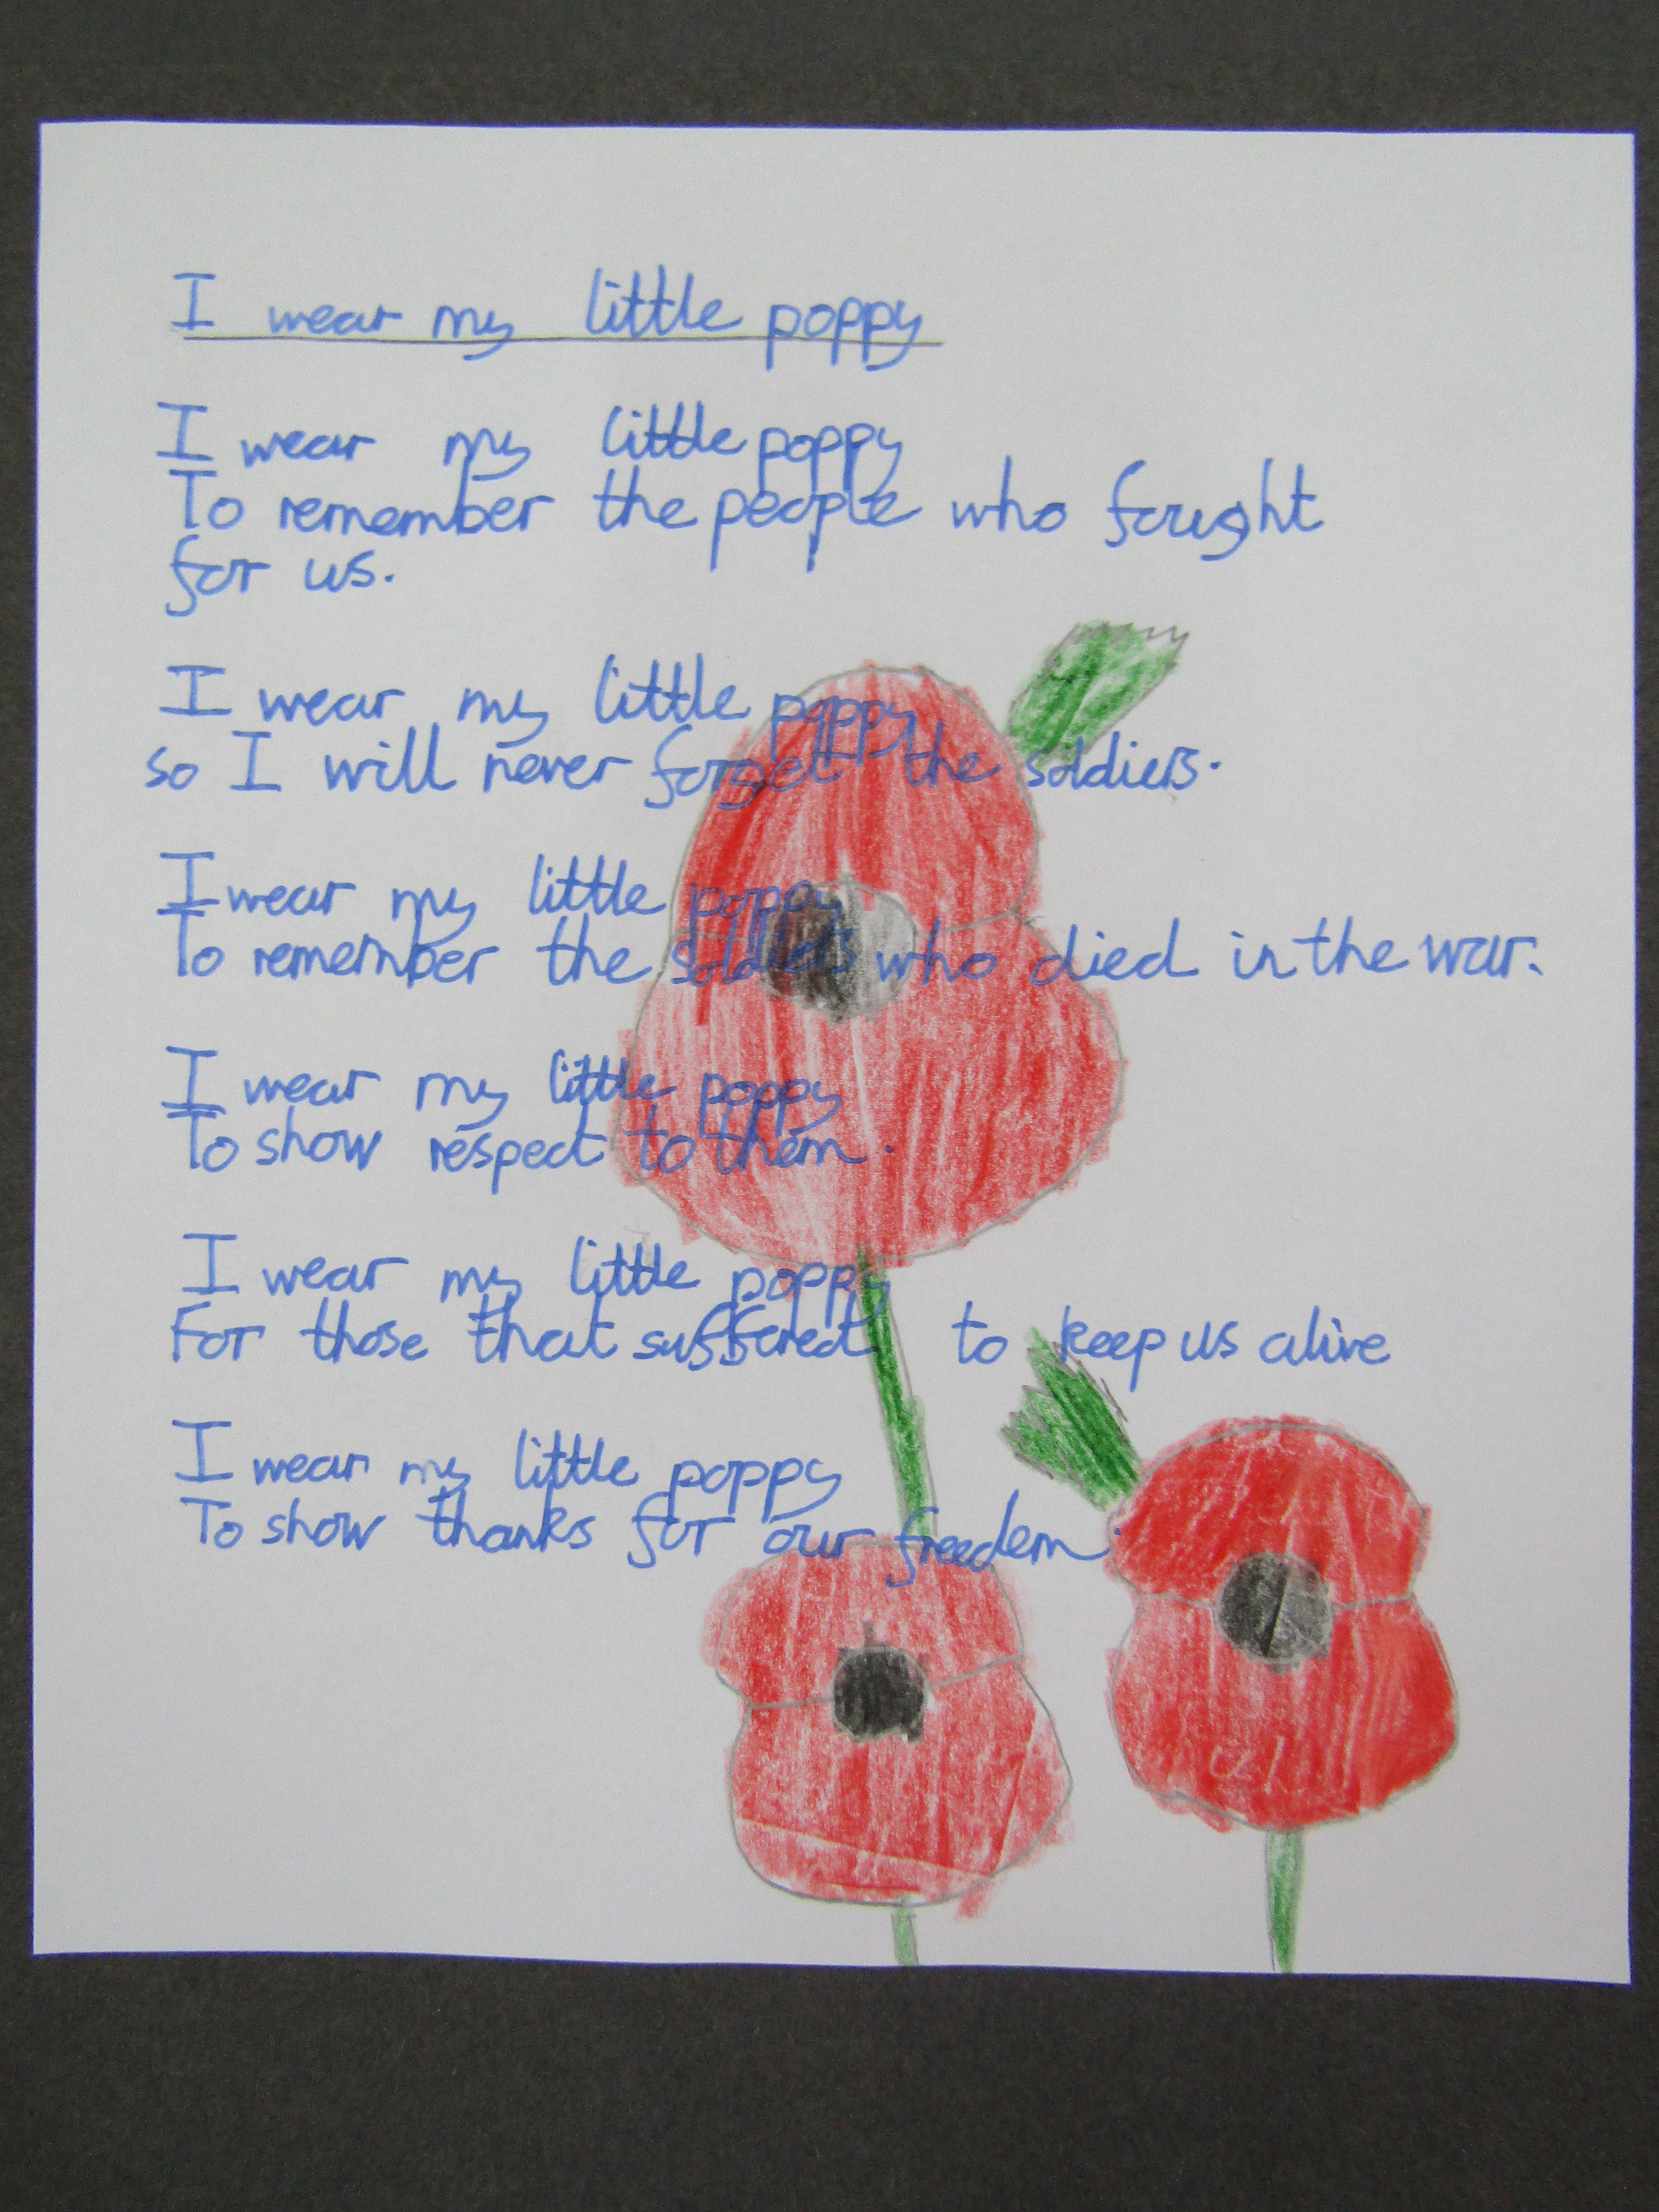 I wear my little poppy
I wear my little poppy
To remember the people who fought
for us.
I wear my little poppy
so I will never forget the soldiers.
I wear my little poppy
To remember the soldiers who died in the war.
I wear my little poppy
To show respect to them.
I wear my little poppy
For those that suffered to keep us alive
I wear my little poppy
To show thanks for our freedem.